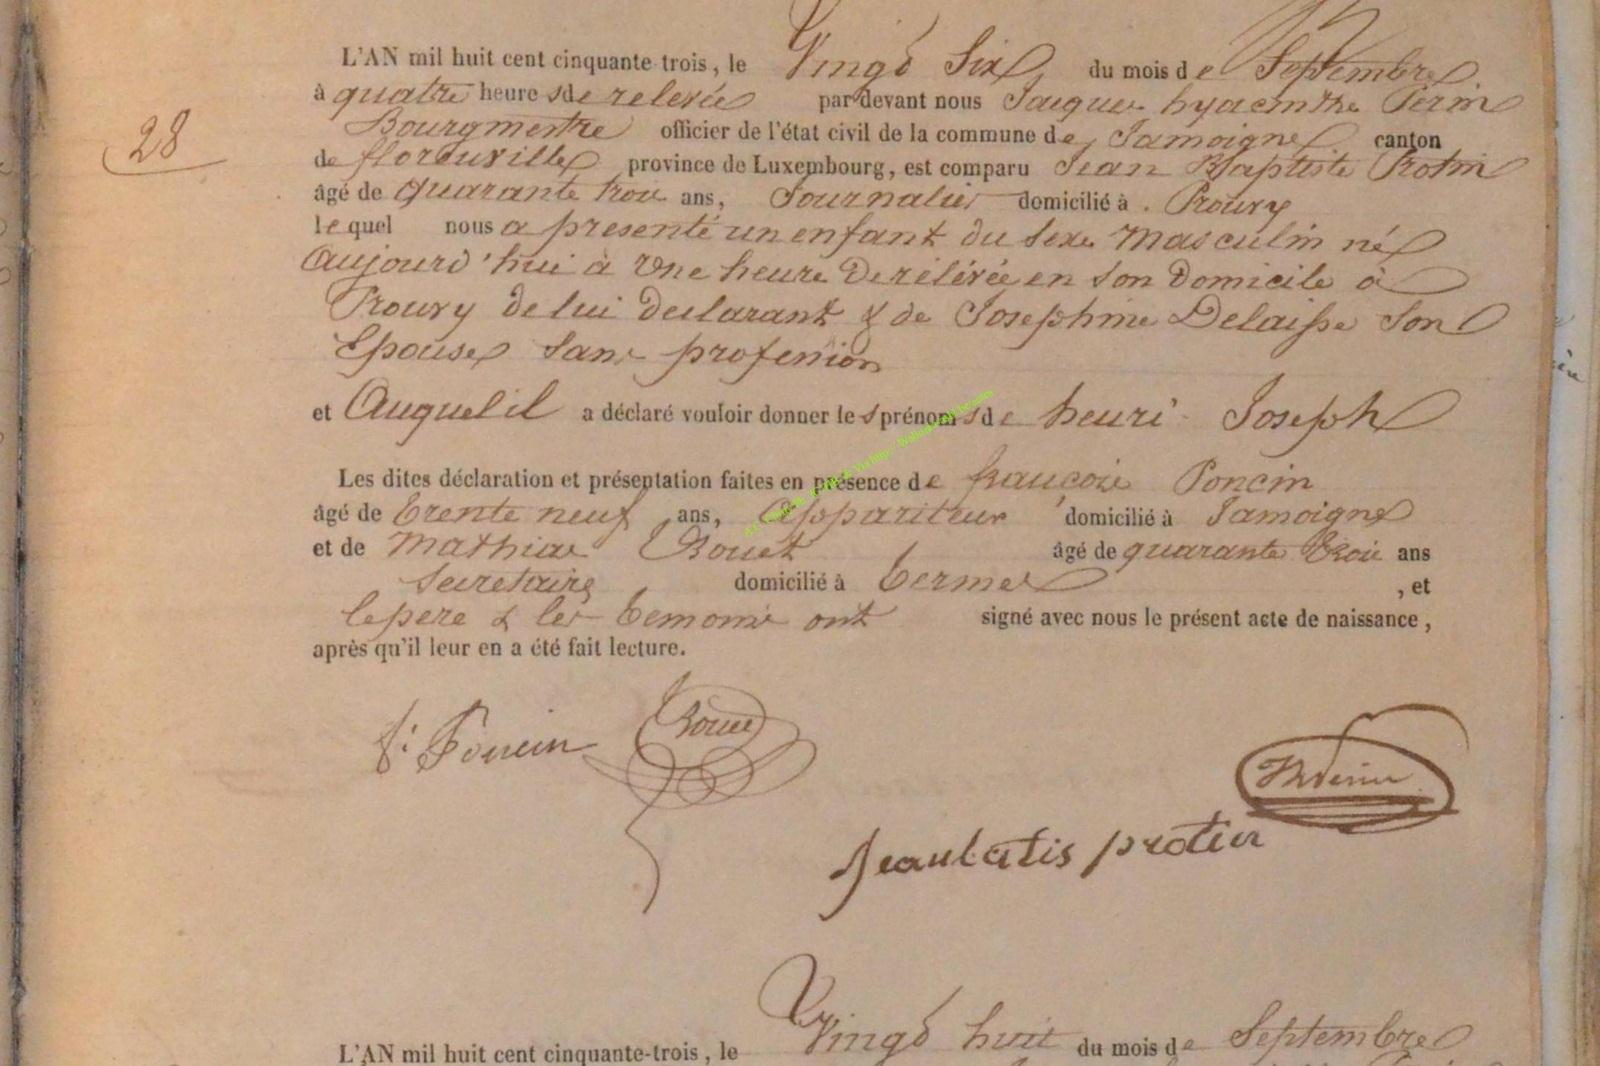 L'AN mil huit cent cinquante-trois, le Vingt Six du mois de Septembre
à quatre heures de relevée par devant nous Jacques hyacinthe Perin
28
Bourgmestre officier de l'état civil de la commune de Jamoigne canton
de florenville province de Luxembourg, est comparu Jean Baptiste Protin
âgé de quarante trois ans, Journalier domicilié à Prouvy
lequel nous a présenté un enfant du sexe masculin né
aujourd'hui à une heure de rélévée en son domicile à
Prouvy de lui declarant & de Josephine Delaisse son
Epouse sans profession
et Auquel il a déclaré vouloir donner les prénoms de henri Joseph
Les dites déclaration et présentation faites en présence de françois Poncin
âgé de trente neuf ans, appariteur domicilié à Jamoigne
et de Mathias Bouet âgé de quarante trois ans
secretaire domicilié à termes , et
le pere & les temoins ont signé avec nous le présent acte de naissance,
après qu'il leur en a été fait lecture.
f: Poncin
Jeanbatis protin
L'AN mil huit cent cinquante-trois, le Vingt huit du mois de Septembre